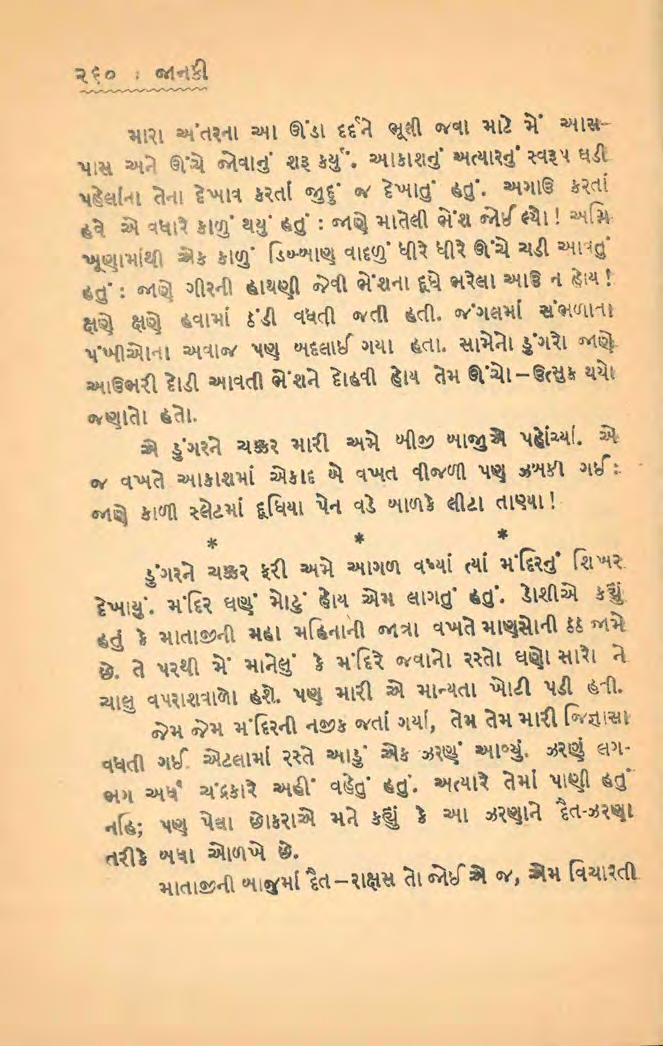 ૨૬૦ : જાનકી
મારા અંતરના આ ઊંડા દર્દને ભૂલી જવા માટે મેં આસ-
પાસ અને ઊંચે જોવાનું શરૂ કર્યું. આકાશનું અત્યારનું સ્વરૂપ ઘડી
પહેલાંના તેના દેખાવ કરતાં જુદું જ દેખાતું હતું. અગાઉ કરતાં
હવે એ વધારે કાળું થયું હતું : જાણે માતેલી ભેંશ જોઈ લ્યો ! અગ્નિ
ખૂણામાંથી એક કાળું ડિબ્બાણ વાદળું ધીરે ધીરે ઊંચે ચડી આવતું
હતું : જાણે ગીરની હાથણી જેવી ભેંશના દૂધે ભરેલા આઉ ન હોય !
ક્ષણે ક્ષણે હવામાં ઠંડી વધતી જતી હતી. જંગલમાં સંભળાતા
પંખીઓના અવાજ પણ બદલાઈ ગયા હતા. સામેનો ડુંગરો જાણે
આઉભરી દોડી આવતી ભેંશને દોહવી હોય તેમ ઊંચો–ઉત્સુક થયો
જણાતો હતો.
એ ડુંગરને ચક્કર મારી અમે બીજી બાજુએ પહોંચ્યાં. એ
જ વખતે આકાશમાં એકાદ બે વખત વીજળી પણ ઝબકી ગઈ :
જાણે કાળી સ્લેટમાં દૂધિયા પેન વડે બાળકે લીટા તાણ્યા !
* * *
ડુંગરને ચક્કર ફરી અમે આગળ વધ્યાં ત્યાં મંદિરનું શિખર
દેખાયું. મંદિર ઘણું મોટું હોય એમ લાગતું હતું. ડોશીએ કહ્યું
હતું કે માતાજીની મહા મહિનાની જાત્રા વખતે માણસોની ઠઠ જામે
છે. તે પરથી મેં માનેલું કે મંદિરે જવાનો રસ્તો ઘણો સારો ને
ચાલુ વપરાશવાળો હશે. પણ મારી એ માન્યતા ખોટી પડી હતી.
જેમ જેમ મંદિરની નજીક જતાં ગયાં, તેમ તેમ મારી જિજ્ઞાસા
વધતી ગઈ. એટલામાં રસ્તે આડું એક ઝરણું આવ્યું. ઝરણું લગ-
ભગ અર્ધ ચંદ્રકારે અહીં વહેતું હતું. અત્યારે તેમાં પાણી હતું
નહિ; પણ પેલા છોકરાએ મને કહ્યું કે આ ઝરણાને દૈત-ઝરણા
તરીકે બધા ઓળખે છે.
માતાજીની બાજુમાં દૈત–રાક્ષસ તો જોઈએ જ, એમ વિચારતી